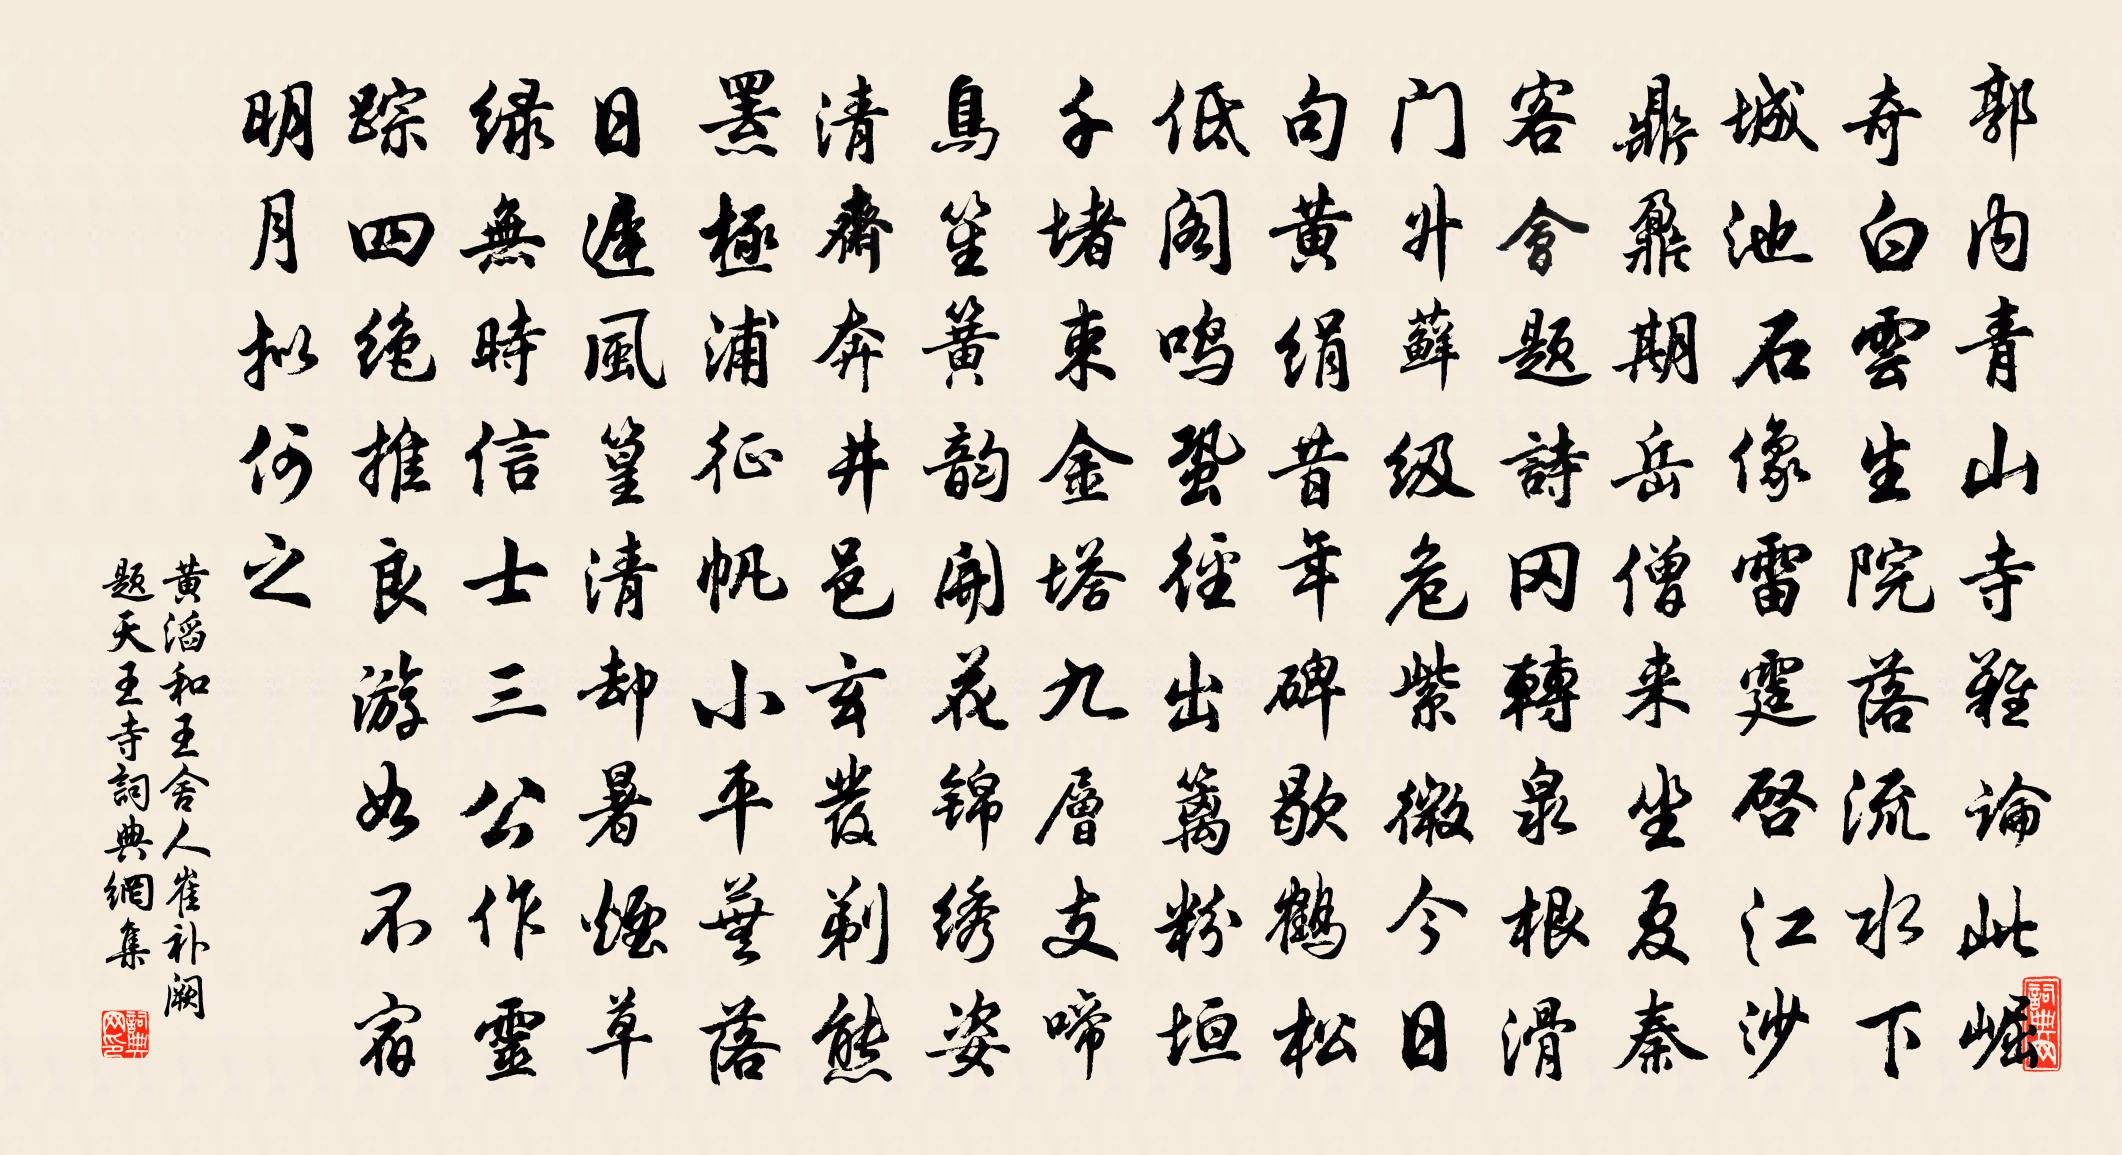 郭内青山寺難論此崛
奇白雲生院落流水下
城池石像雷霆啓江沙
鼎鼐期岳僧来坐夏秦
客會题詩冈轉泉根滑
门升蘚级危紫微今日
句黄绢昔年碑歇鹤松
低阁鸣蛩徑出篱粉垣
千堵束金塔九層支啼
鳥笙簧韵開花锦绣姿
清齋奔井邑玄發剃熊
羆極浦征帆小平蕪落
日遲風篁清却暑煙草
绿無時信士三公作靈
踪四绝推良游如不宿
明月拟何之
黄滔和王舍人崔补阙
题天王寺詞典網集
詞典网